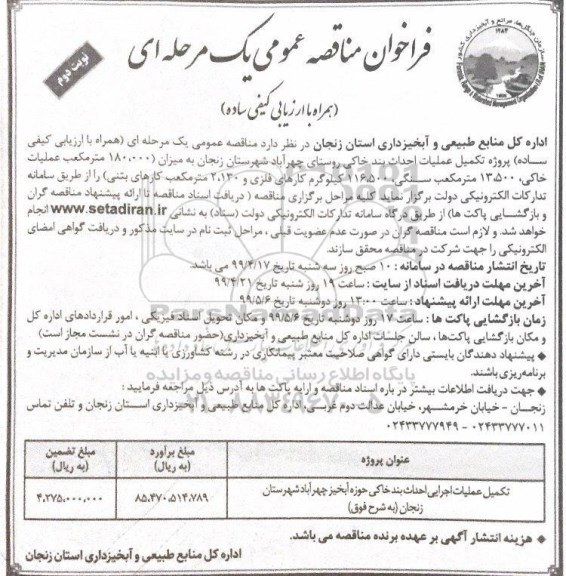 فراخوان مناقصه عمومی یک مرحله ای
(همراه با ارزیابی کیفی ساده)
نوبت دوم
اداره کل منابع طبیعی و آبخیزداری استان زنجان در نظر دارد مناقصه عمومی یک مرحله ای (همراه با ارزیابی کیفی
ساده) پروژه تکمیل عملیات احداث بند خاکی روستای چهرآباد شهرستان زنجان به میزان (۱۸۰،۰۰۰ مترمکعب عملیات
خاکی، ۱۳،۵۰۰ مترمکعب سنگی، ۱۱۶،۵۰۰ کیلوگرم کارهای فلزی و ۲،۱۳۰ مترمکعب کارهای بتنی) را از طریق سامانه
تدارکات الکترونیکی دولت برگزار نماید. کلیه مراحل برگزاری مناقصه ( دریافت اسناد مناقصه تا ارائه پیشنهاد مناقصه گران
و بازگشایی پاکت ها) از طریق درگاه سامانه تدارکات الکترونیکی دولت (ستاد) به نشانی www.setadiran.ir انجام
خواهد شد. و لازم است مناقصه گران در صورت عدم عضویت قبلی ، مراحل ثبت نام در سایت مذکور و دریافت گواهی امضای
الکترونیکی را جهت شرکت در مناقصه محقق سازند.
تاریخ انتشار مناقصه در سامانه : ۱۰ صبح روز سه شنبه تاریخ ۹۹/۴/۱۷ می باشد.
آخرین مهلت دریافت اسناد از سایت : ساعت ۱۹ روز شنبه تاریخ ۹۹/۴/۲۱
آخرین مهلت ارائه پیشنهاد : ساعت ۱۳:۰۰ روز دوشنبه تاریخ ۹۹/۵/۶
زمان بازگشایی پاکت ها : ساعت ۱۷ روز دوشنبه تاریخ ۹۹/۵/۶ و مکان تحویل اسناد فیزیکی ، امور قراردادهای اداره کل
و مکان بازگشایی پاکت‌ها ، سالن جلسات اداره کل منابع طبیعی و آبخیزداری(حضور مناقصه گران در نشست مجاز است)
◆ پیشنهاد دهندگان بایستی دارای گواهی صلاحیت معتبر پیمانکاری در رشته کشاورزی یا ابنیه یا آب از سازمان مدیریت و
برنامه‌ریزی باشند.
◆ جهت دریافت اطلاعات بیشتر در باره اسناد مناقصه و ارایه پاکت ها به آدرس ذیل مراجعه فرمایید :
زنجان - خیابان خرمشهر، خیابان عدالت دوم غربی، اداره کل منابع طبیعی و آبخیزداری استان زنجان و تلفن تماس
۰۲۴۳۳۷۷۷۰۱۱ - ۰۲۴۳۳۷۷۷۹۴۹
عنوان پروژه
مبلغ برآورد
(به ریال)
مبلغ تضمین
(به ریال)
تکمیل عملیات اجرایی احداث بند خاکی حوزه آبخیز چهرآباد شهرستان
زنجان (به شرح فوق)
۸۵،۴۷۰،۵۱۴،۷۸۹
۴،۲۷۵،۰۰۰،۰۰۰
◆ هزینه انتشار آگهی بر عهده برنده مناقصه می باشد.
اداره کل منابع طبیعی و آبخیزداری استان زنجان